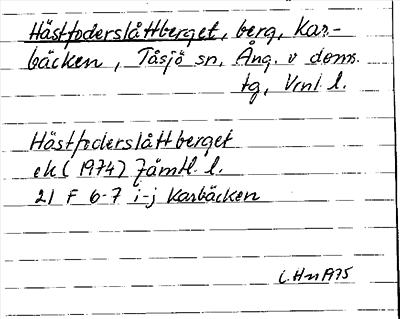 Hästfoderslåttberget, berg, Kar-
bäcken, Tåsjö sn, Ång. v doms.
tg, Vrnl l.
Hästfoderslåttberget
ek (1974) Jämtl. l.
21 F 6-7 i-j Karbäcken
1975